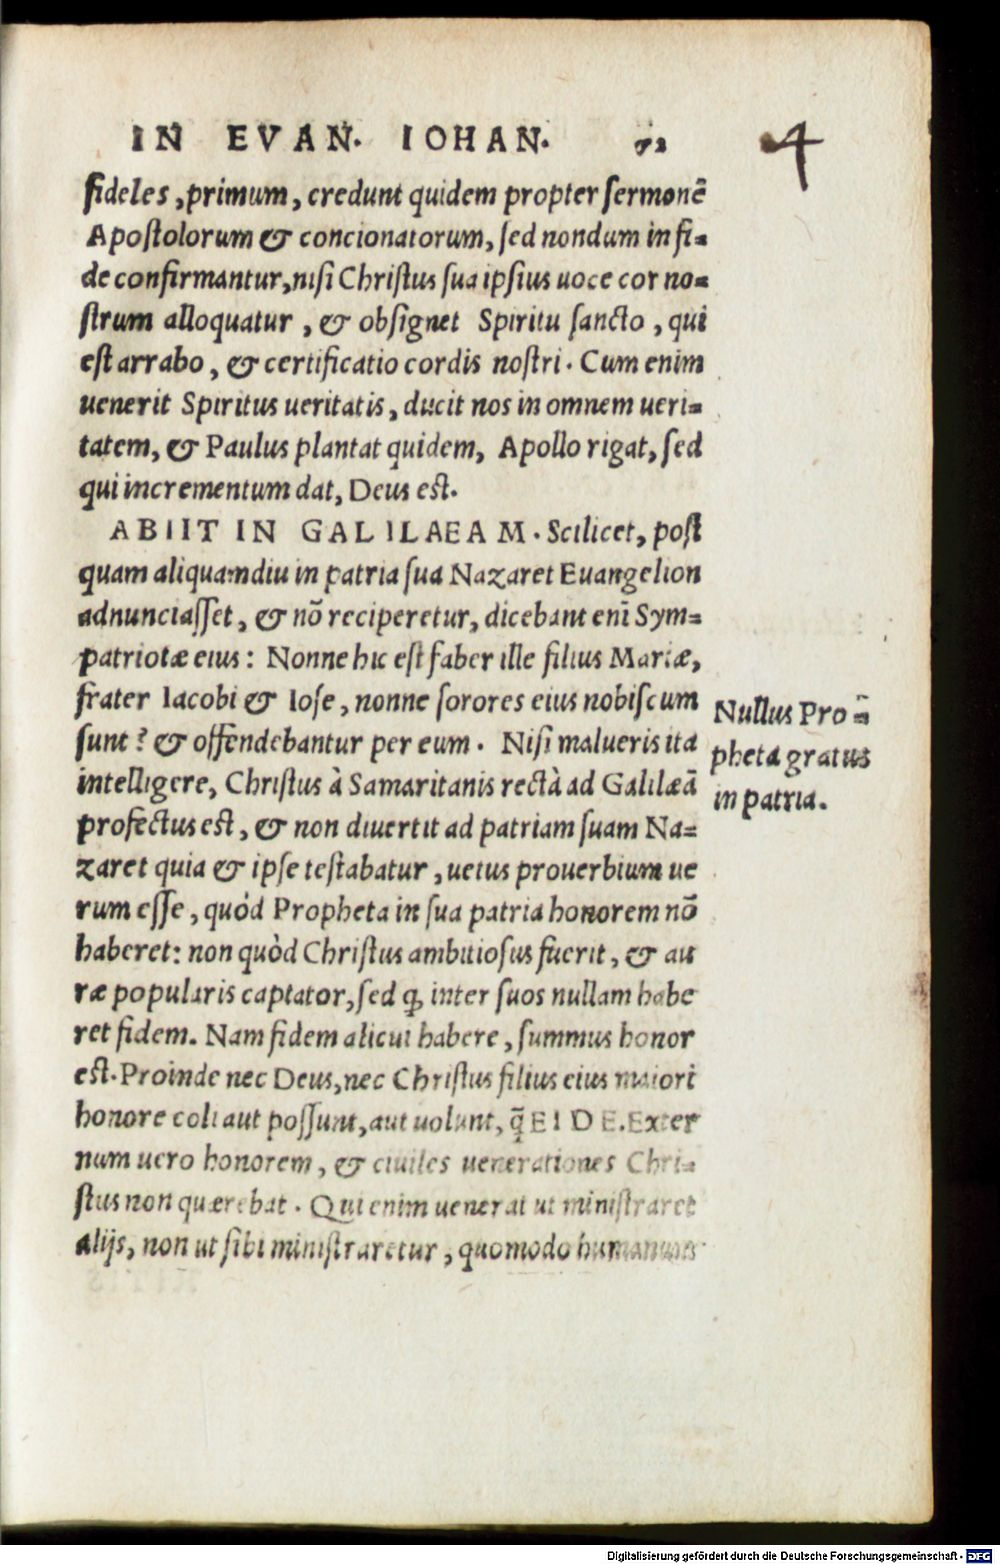 IN EVAN. IOHAN. 72
4
fideles, primum, credunt quidem propter sermonē
Apostolorum & concionatorum, sed nondum in fi=
de confirmantur, nisi Christus sua ipsius uoce cor no=
strum alloquatur, & obsignet Spiritu sancto, qui
est arrabo, & certificatio cordis nostri. Cum enim
uenerit Spiritus ueritatis, ducit nos in omnem ueri=
tatem, & Paulus plantat quidem, Apollo rigat, sed
qui incrementum dat, Deus est.
ABIIT IN GALILAEAM. Scilicet, post
quam aliquamdiu in patria sua Nazaret Euangelion
adnunciasset, & nō reciperetur, dicebant enī Sym=
patriotæ eius: Nonne hic est faber ille filius Mariæ,
frater Iacobi & Iose, nonne sorores eius nobiscum
sunt? & offendebantur per eum. Nisi malueris ita
intelligere, Christus à Samaritanis rectà ad Galilæā
profectus est, & non diuertit ad patriam suam Na=
zaret quia & ipse testabatur, uetus prouerbium ue
rum esse, quòd Propheta in sua patria honorem nō
haberet: non quòd Christus ambitiosus fuerit, & au
ræ popularis captator, sed ꝙ inter suos nullam habe
ret fidem. Nam fidem alicui habere, summus honor
est. Proinde nec Deus, nec Christus filius eius maiori
honore coli aut possunt, aut uolunt, q̄ FIDE. Exter
num uero honorem, & ciuiles uenerationes Chri=
stus non quærebat. Qui enim uenerat ut ministraret
alijs, non ut sibi ministraretur, quomodo humanum
Nullus Pro=
pheta gratus
in patria.
Digitalisierung gefördert durch die Deutsche Forschungsgemeinschaft - DFG